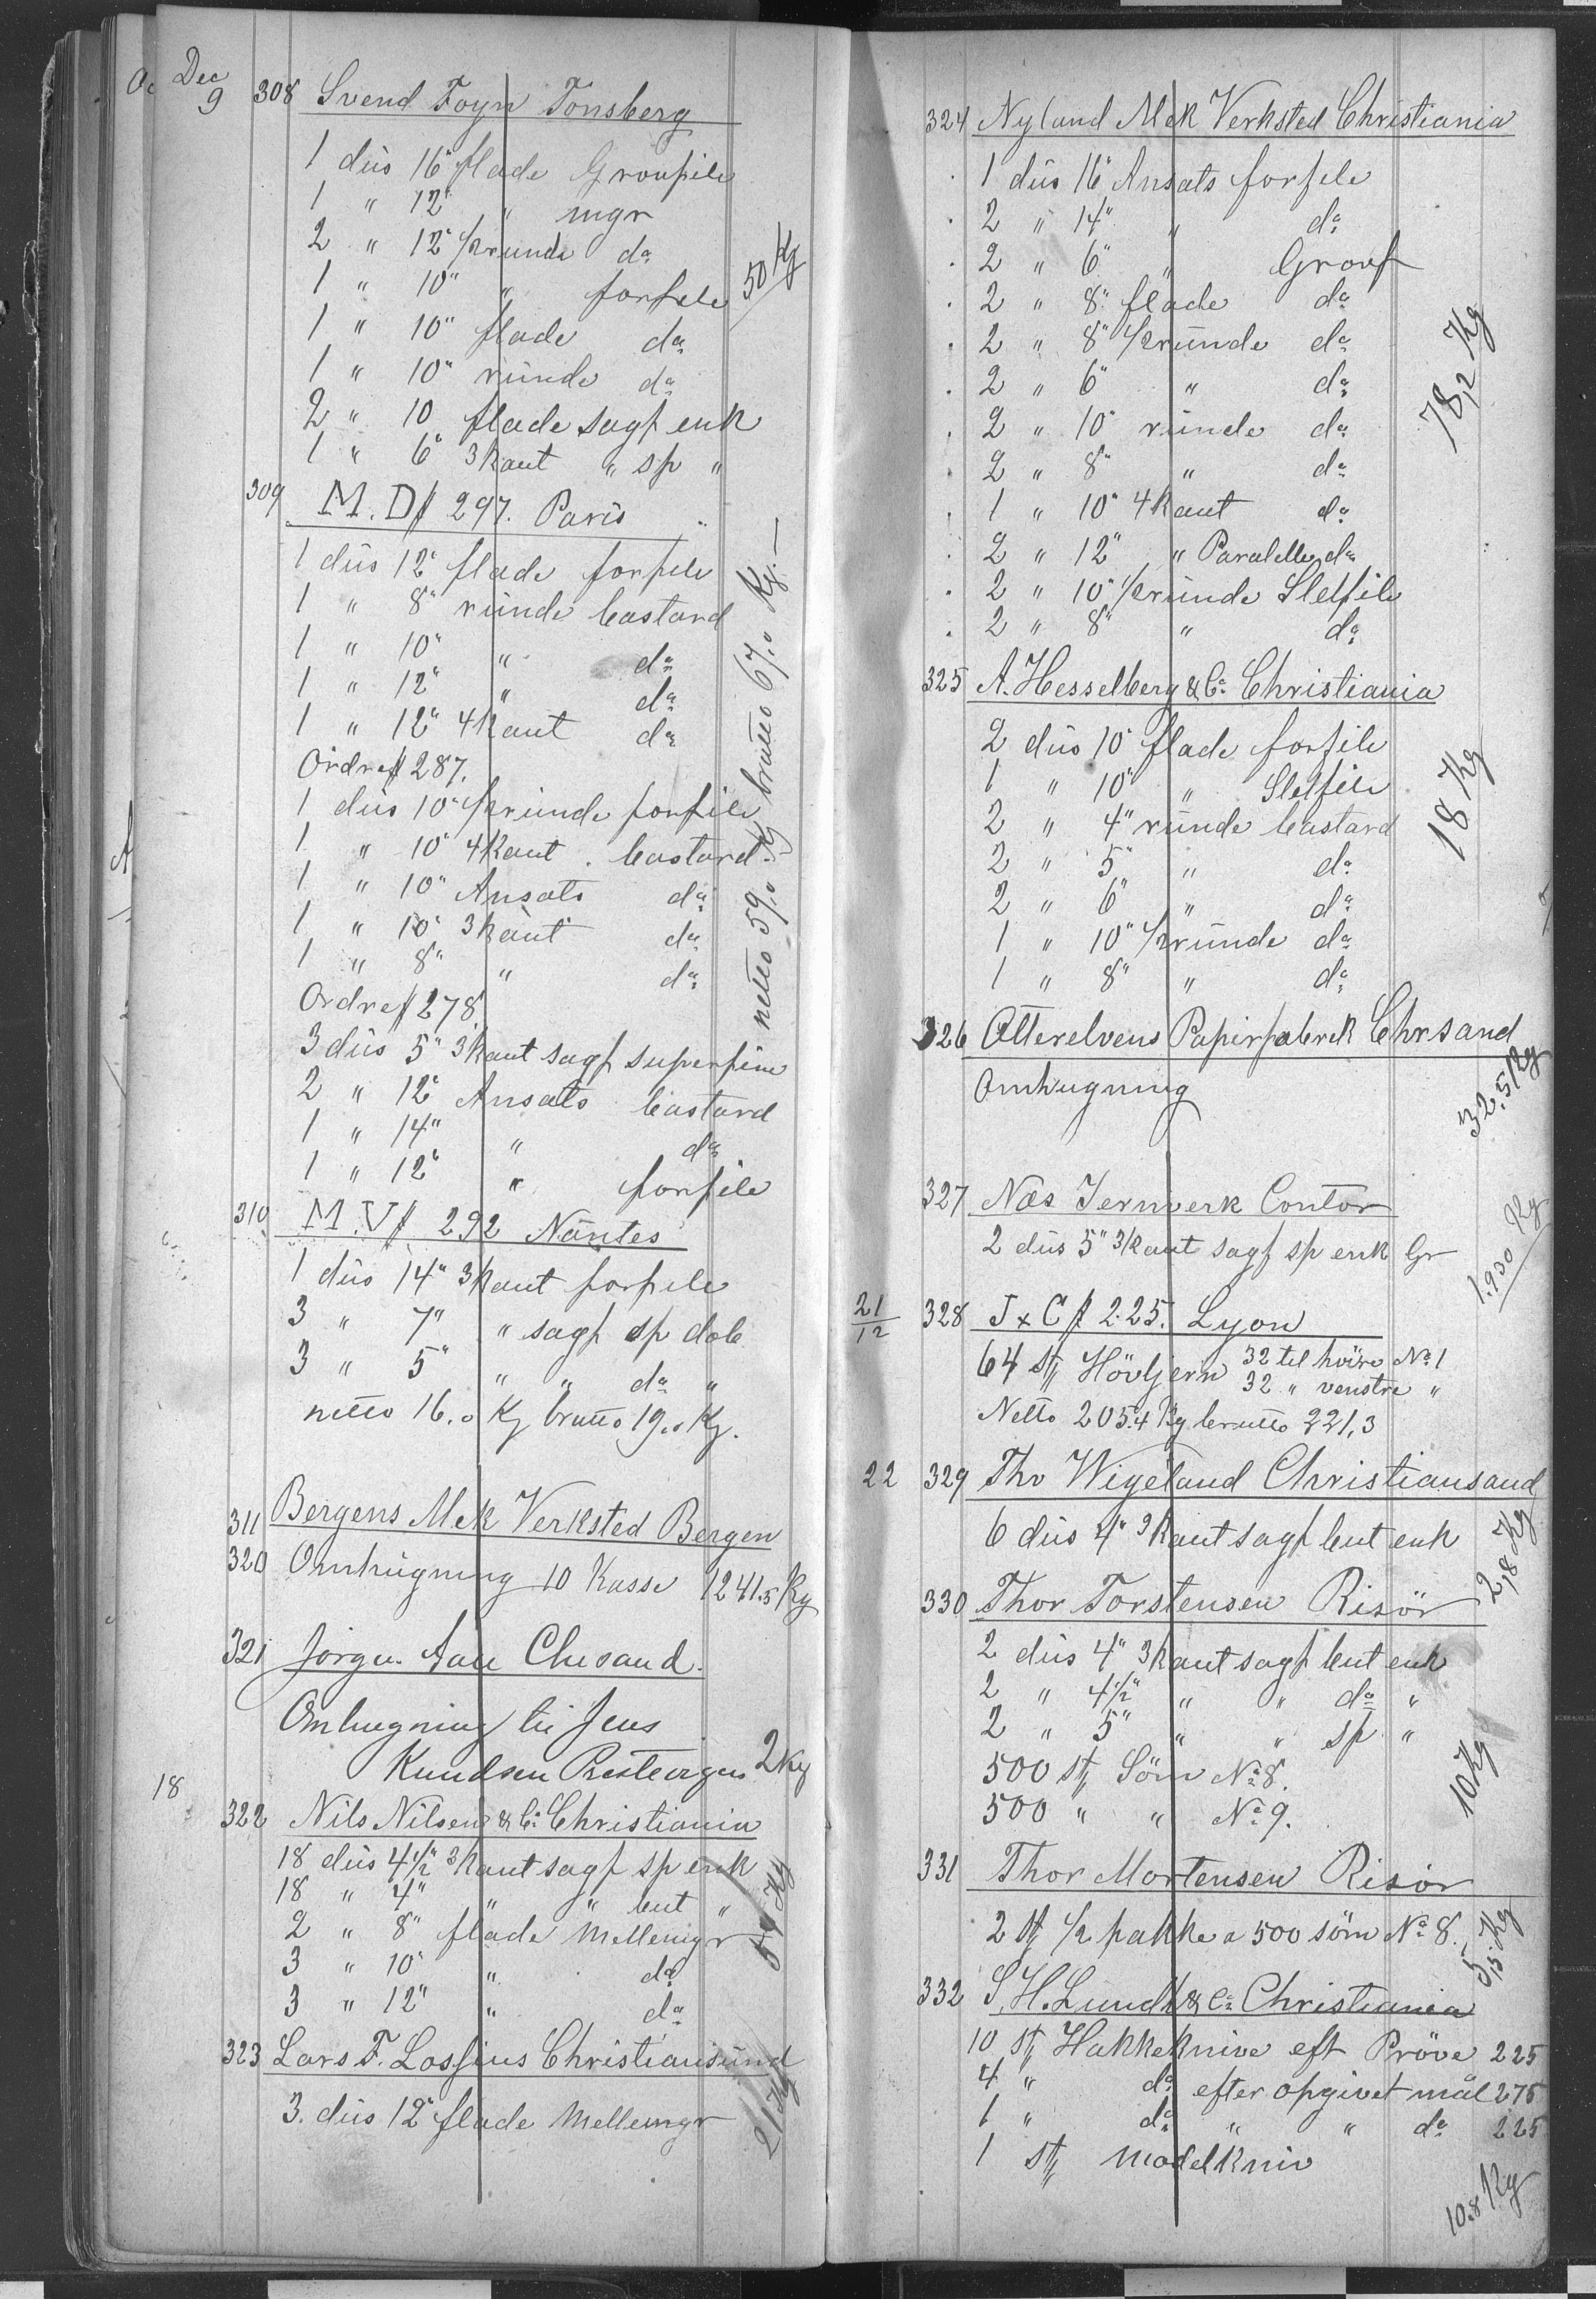 Dec
9
308 Svend Foyn Tonsberg
1 düs 16" flade Groufile
1 " 12" " mgr
2 " 12" 1/2runde do
1 " 10" " forfile
50 Kg
1 " 10" flade do
1 " 10" ründe do
2 " 10 flade sagf enk
1 " 6" 3kant " sp "
309 M. D# 297. Paris
1 düs 12" flade forfile
1 " 8" ründe bastard
1 " 10" " do
1 " 12" " do
1 " 12" 4kant do
Ordre# 287.
1 düs 10" 1/2ründe forfile
1 " 10" 4Kant bastard
1 " 10" Ansats do
1 " 10" 3kant do
1 " 8" " do
netto 59,0 Kg brutto 67,0 Kg. —
Ordre# 278
3 düs 5" 3kant sagf superfine
2 " 12" Ansats bastard
1 " 14" " do
1 " 12" " forfile
310 M. V# 292 Nantes
1 düs 14" 3kant forfile
3 " 7" " sagf sp dob
3 " 5" " " do "
netto 16,0 Kg brutto 19,0 Kg.
311 Bergens Mek Verksted Bergen
320 Omhugning 10 Kasse 1241.5 Kg
321 Jørgen Aall Chrsand.
Omhugning til Jens
Knudsen 2 Kg
18
322 Nils Nilsen & Co Christiania
18 düs 4 1/2" 3kant sagf sp enk
18 " 4" " " but "
2 " 8" flade Mellemgr
3 " 10" " do
3 " 12" " do
59 Kg
323 Lars F. Lossius Christiansund
3. düs 12" flade Mellemgr
21 Kg
324 Nyland Mek Verksted Christiania
1 düs 16" Ansats forfile
2 " 14" " do
2 " 6" " Grovf
2 " 8" flade do
2 " 8" 1/2ründe do
2 " 6" " do
2 " 10" ründe do
2 " 8" " do
1 " 10" 4kant do
2 " 12" " Paralelle do
2 " 10" 1/2ründe Sletfile
2 " 8" " do
78,2 Kg
325 A. Hesselberg & Co Christiania
2 düs 10" flade forfile
1 " 10" " Sletfile
2 " 4" ründe bastard
2 " 5" " do
2 " 6" " do
1 " 10" 1/2ründe do
1 " 8" " do
18 Kg
326 Otterelvens Papirfabrek Chrsand
Omhugning
32,5 Kg
327 Næs Jernverk Contor
2 düs 5" 3kant sagf sp enk Gr
1.930 Kg
21/12
328 J x C # 225. Lyon
64 st Hövljern 32 til höire No 1
32 " venstre "
Netto 205,4 Kg brutto 221,3
22
329 Thv Wigeland Christiansand
6 düs 4" 3kant sagf but enk
2,8 Kg
330 Thor Torstensen Risör
2 düs 4" 3kant sagf but enk
2 " 4 1/2" " " do "
2 " 5" " " sp "
500 st Söm No 8.
500 " " No 9.
10 Kg
331 Thor Mortensen Risör
2 st 1/2 pakke a 500 söm No 8.
5,5 Kg
332 S. H. Lundh & Co Christiania
10 st Hakkeknive eft Pröve 225
4 " do efter opgivet mål 275
1 " do " " do 225
1 st modelkniv
10.8 Kg